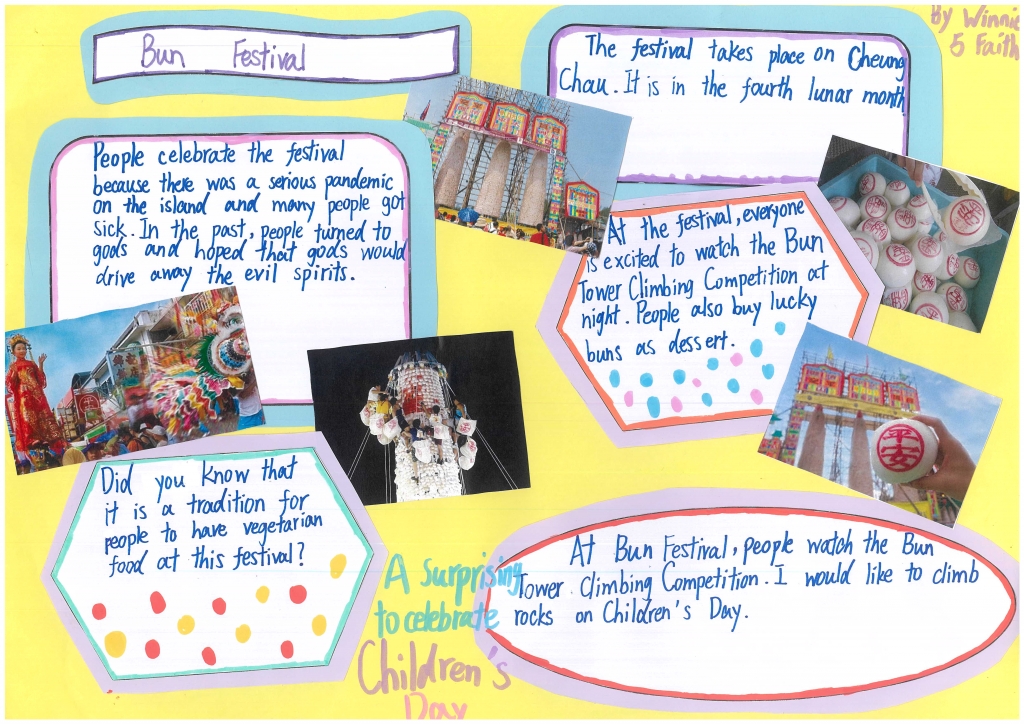 By Winnie
5 Faith
Bun Festival
The festival takes place on Cheung
Chau. It is in the fourth lunar month
People celebrate the festival
because there was a serious pandemic
on the island and many people got
sick. In the past, people turned to
gods and hoped that gods would
drive away the evil spirits.
At the festival, everyone
is excited to watch the Bun
Tower Climbing Competition at
night. People also buy lucky
buns as dessert.
平安
Did you know that
it is a tradition for
people to have vegetarian
food at this festival?
A surprising
to celebrate
Children's
Day
At Bun Festival, people watch the Bun
Tower Climbing Competition. I would like to climb
rocks on Children's Day.